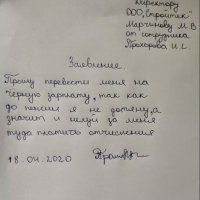 Директору
ООО "Стройтик"
Мартынову М.В
от сотрудника
Прохорова И.С.
Заявление
Прошу перевести меня на
чёрную зарплату, так как
до пенсии я не дотяну, а
значит и нехуй за меня
туда платить отчисления
18.04.2020